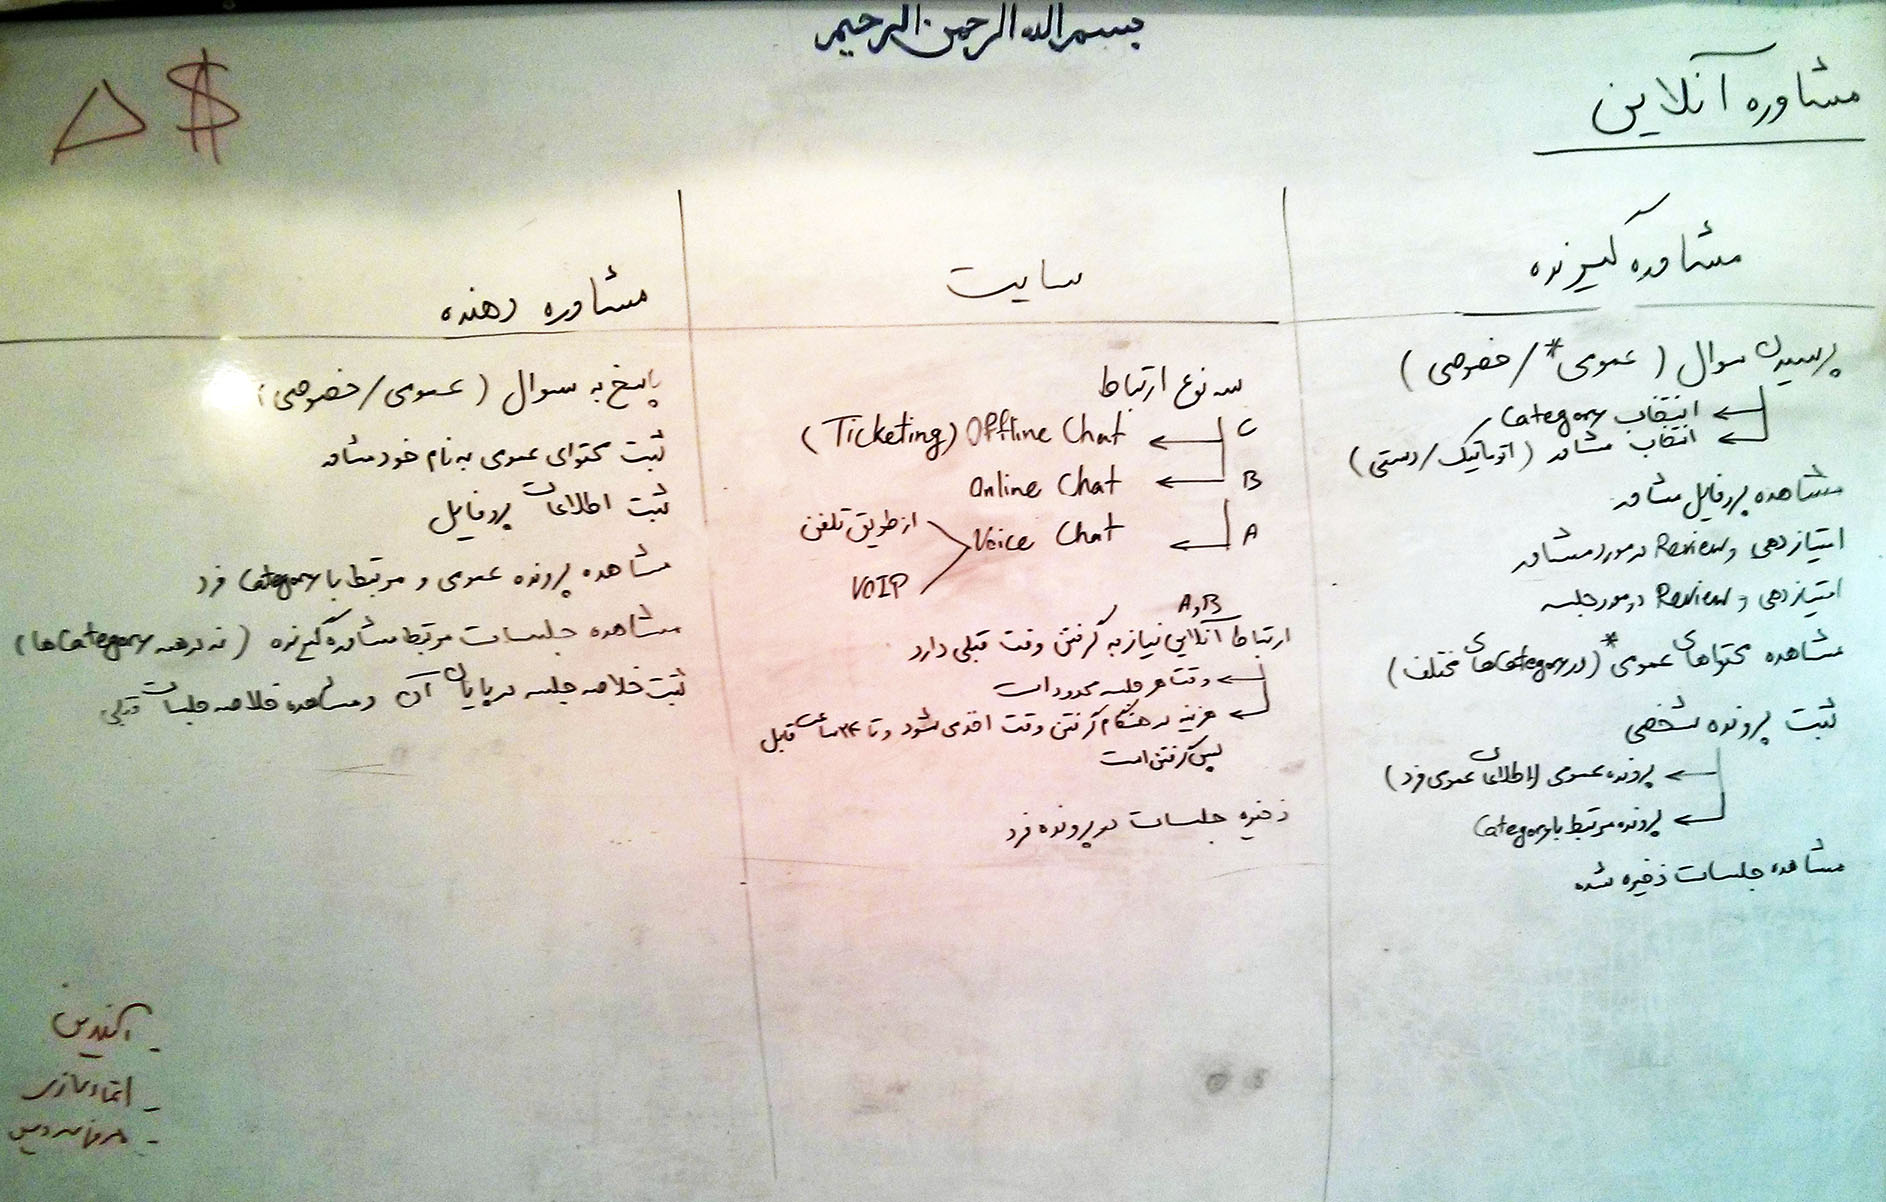 بسم الله الرحمن الرحیم
مشاوره آنلاین
$
مشاوره گیرنده
پرسیدن سوال (عمومی* / خصوصی)
انتخاب Category
انتخاب مشاور (اتوماتیک / دستی)
مشاهده پروفایل مشاور
امتیازدهی و Review در مورد مشاور
امتیازدهی و Review در مورد جلسه
مشاهده محتواهای عمومی* (در Categoryهای مختلف)
ثبت پرونده شخصی
پرونده عمومی (اطلاعات عمومی فرد)
پرونده مرتبط با Category
مشاهده جلسات ذخیره شده
سایت
سه نوع ارتباط
C Offline Chat (Ticketing)
B Online Chat
A Voice Chat
از طریق تلفن
VOIP
A,B
ارتباط آنلاین نیاز به گرفتن وقت قبلی دارد
وقت هر جلسه محدود است
هزینه در هنگام گرفتن وقت اخذ می شود و تا ۲۴ ساعت قبل
پس گرفتنی است
ذخیره جلسات در پرونده فرد
مشاوره دهنده
پاسخ به سوال (عمومی / خصوصی)
ثبت محتوای عمومی به نام خود مشاور
ثبت اطلاعات پروفایل
مشاهده پرونده عمومی و مرتبط با Category فرد
مشاهده جلسات مرتبط مشاوره گیرنده (نه در همه Categoryها)
ثبت خلاصه جلسه در پایان آن و مشاهده خلاصه جلسات قبلی
- اعتمادسازی